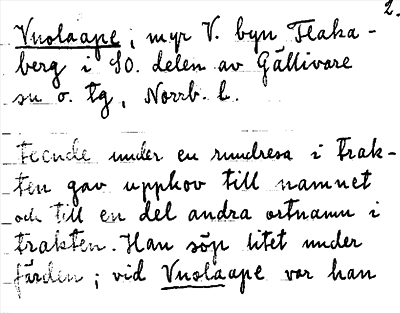 2.
Vuolaape, myr V. byn Flaka-
berg i SO. delen av Gällivare
sn o. tg, Norrb. l.
tecnde under en rundresa i trak-
ten gav upphov till namnet
och till en del andra ortnamn i
trakten. Han söp litet under
färden; vid Vuolaape var han